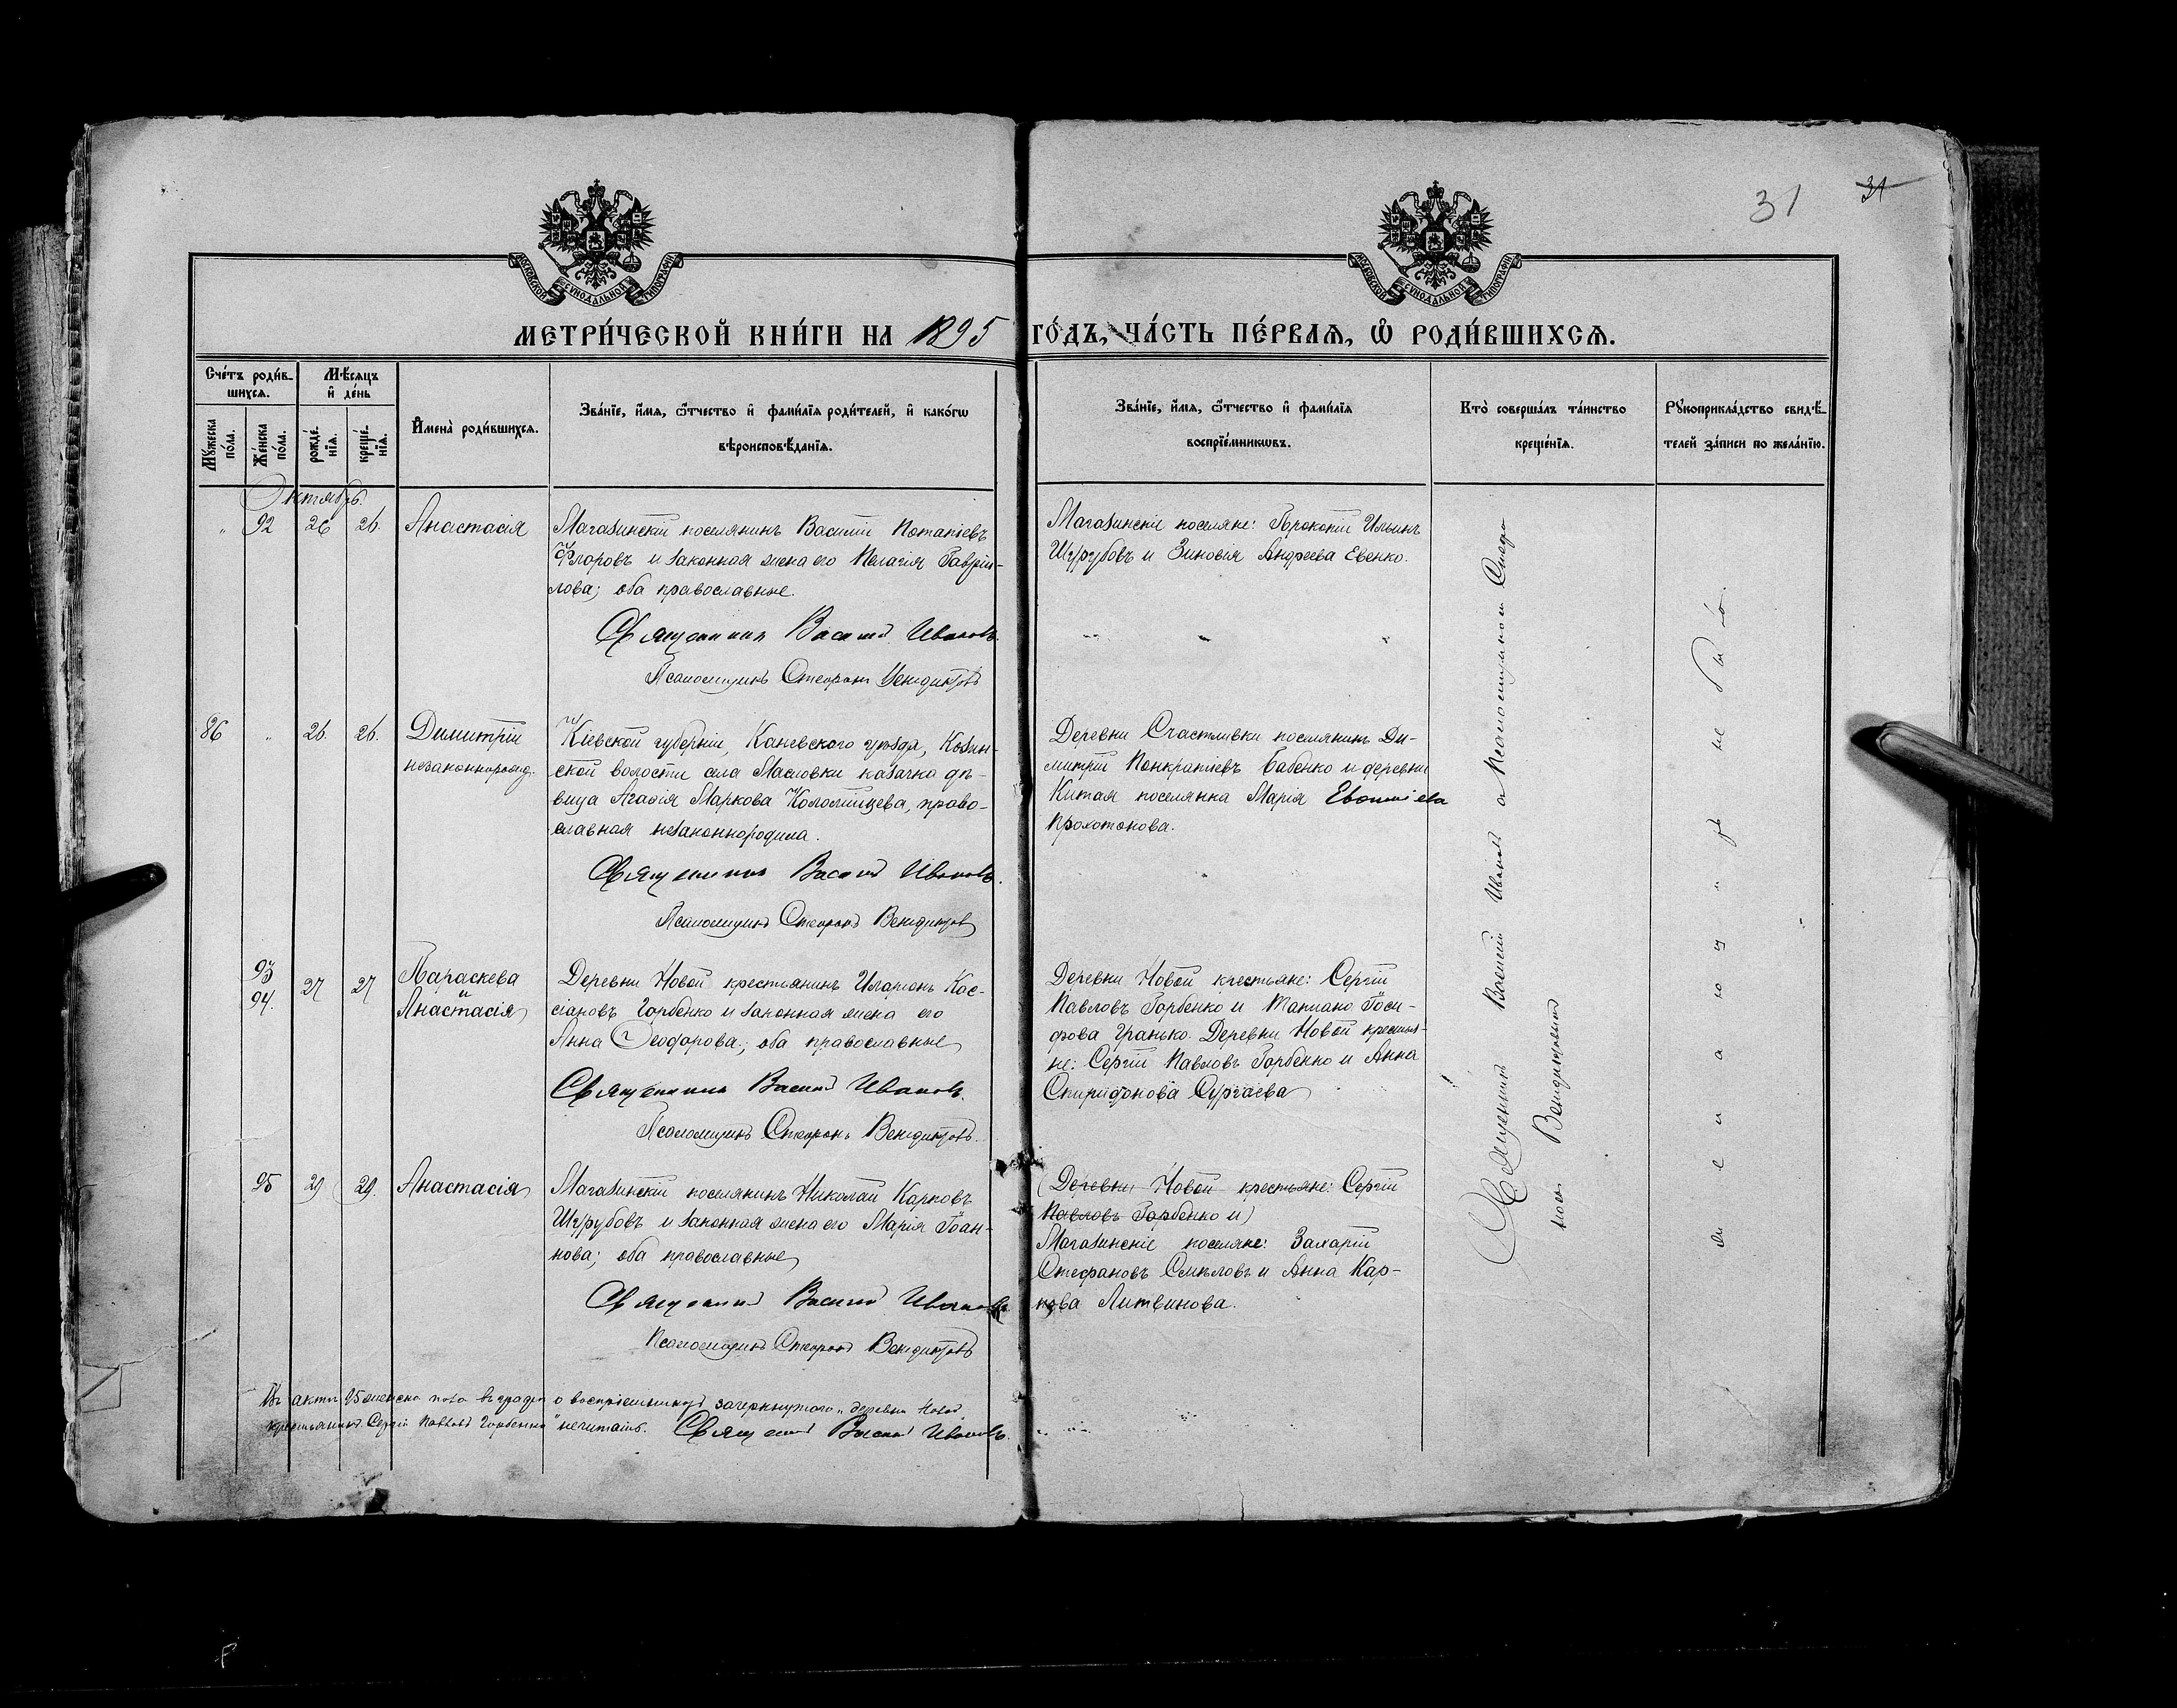 31
31
МОСКОВСКОЙ СѴНОДАЛЬНОЙ ТИПОГРАФІИ
МОСКОВСКОЙ СѴНОДАЛЬНОЙ ТИПОГРАФІИ
МЕТРИ́ЧЕСКОЙ КНИ́ГИ НА 1895 ГО́ДЪ, ЧА́СТЬ ПЕ́РВАѦ, Ѡ РОДИ́ВШИХСѦ.
Сче́тъ роди́в-
шихсѧ.
Мꙋ́жеска по́ла.
Же́нска по́ла.
Мѣ́сѧцъ
и҆ де́нь
рожде́-
нїѧ.
креще́-
нїѧ.
И҆мена̀ роди́вшихсѧ.
Зва́нїе, и҆́мѧ, ѻ҆́тчество и҆ фами́лїѧ роди́телей, и҆ како́гѡ
вѣроисповѣ́данїѧ.
Зва́нїе, и҆́мѧ, ѻ҆́тчество и҆ фами́лїѧ
воспрїе́мникѡвъ.
Кто̀ соверша́лъ та́инство
креще́нїѧ.
Рꙋкоприкла́дство свидѣ́-
телей за́писи по жела́нїю.
Октябрь.
" 92 26 26. Анастасія
Магазинскій поселянинъ Василій Потапіевъ
Фларовъ и законная жена его Пелагія Гавріи-
лова; оба православные.
Священникъ Василій Ивановъ.
Псаломщикъ Стефанъ Венидиктовъ
Магазинскіе поселяне: Прокопій Ильинъ
Шурубовъ и Зиновія Андреева Евенко.
86 " 26. 26. Димитрій
незаконнорожд.
Кіевской губерніи, Каневского уѣзда, Козин-
ской волости села Масловки казачка дѣ-
вица Агафія Маркова Коломійцева, право-
славная незаконнородила.
Священникъ Василій Ивановъ.
Псаломщикъ Стефанъ Венидиктовъ
Деревни Счастливки поселянинъ Ди-
митрій Понкратіевъ Бабенко и деревни
Китая поселянка Марія
93 27 27 Параскева
94. и
Анастасія
Деревни Новой крестьянинъ Иларіонъ Кас-
сіановъ Горбенко и законная жена его
Анна Ѳеодорова; оба православные
Священникъ Василій Ивановъ.
Псаломщикъ Стефанъ Венидиктовъ.
Деревни Новой крестьяне: Сергій
Павловъ Горбенко и Татіана Іоси-
фова Гранько. Деревни Новой крестья-
не: Сергій Павловъ Горбенко и Анна
Спиридонова Сургаева
95 29 29. Анастасія
Магазинскій поселянинъ Николай Карповъ
Шурубовъ и законная жена его Марія Іоан-
нова; оба православные
Священникъ Василій Ивановъ
Псаломщикъ Стефанъ Венидиктовъ
(Деревни Новой крестьяне: Сергій
Павловъ Горбенко и)
Магазинскіе поселяне: Захарій
Стефановъ Смѣловъ и Анна Кар-
пова Литвинова.
Въ актѣ 95 женска пола въ графѣ о воспріемникахъ зачеркнутого "деревни Новой
крестьянинъ Сергій Павловъ Горбенко" нечитать. Священникъ Василій Ивановъ.
Священникъ Василій Ивановъ и Псаломщикомъ Стефа-
номъ Венидиктовымъ